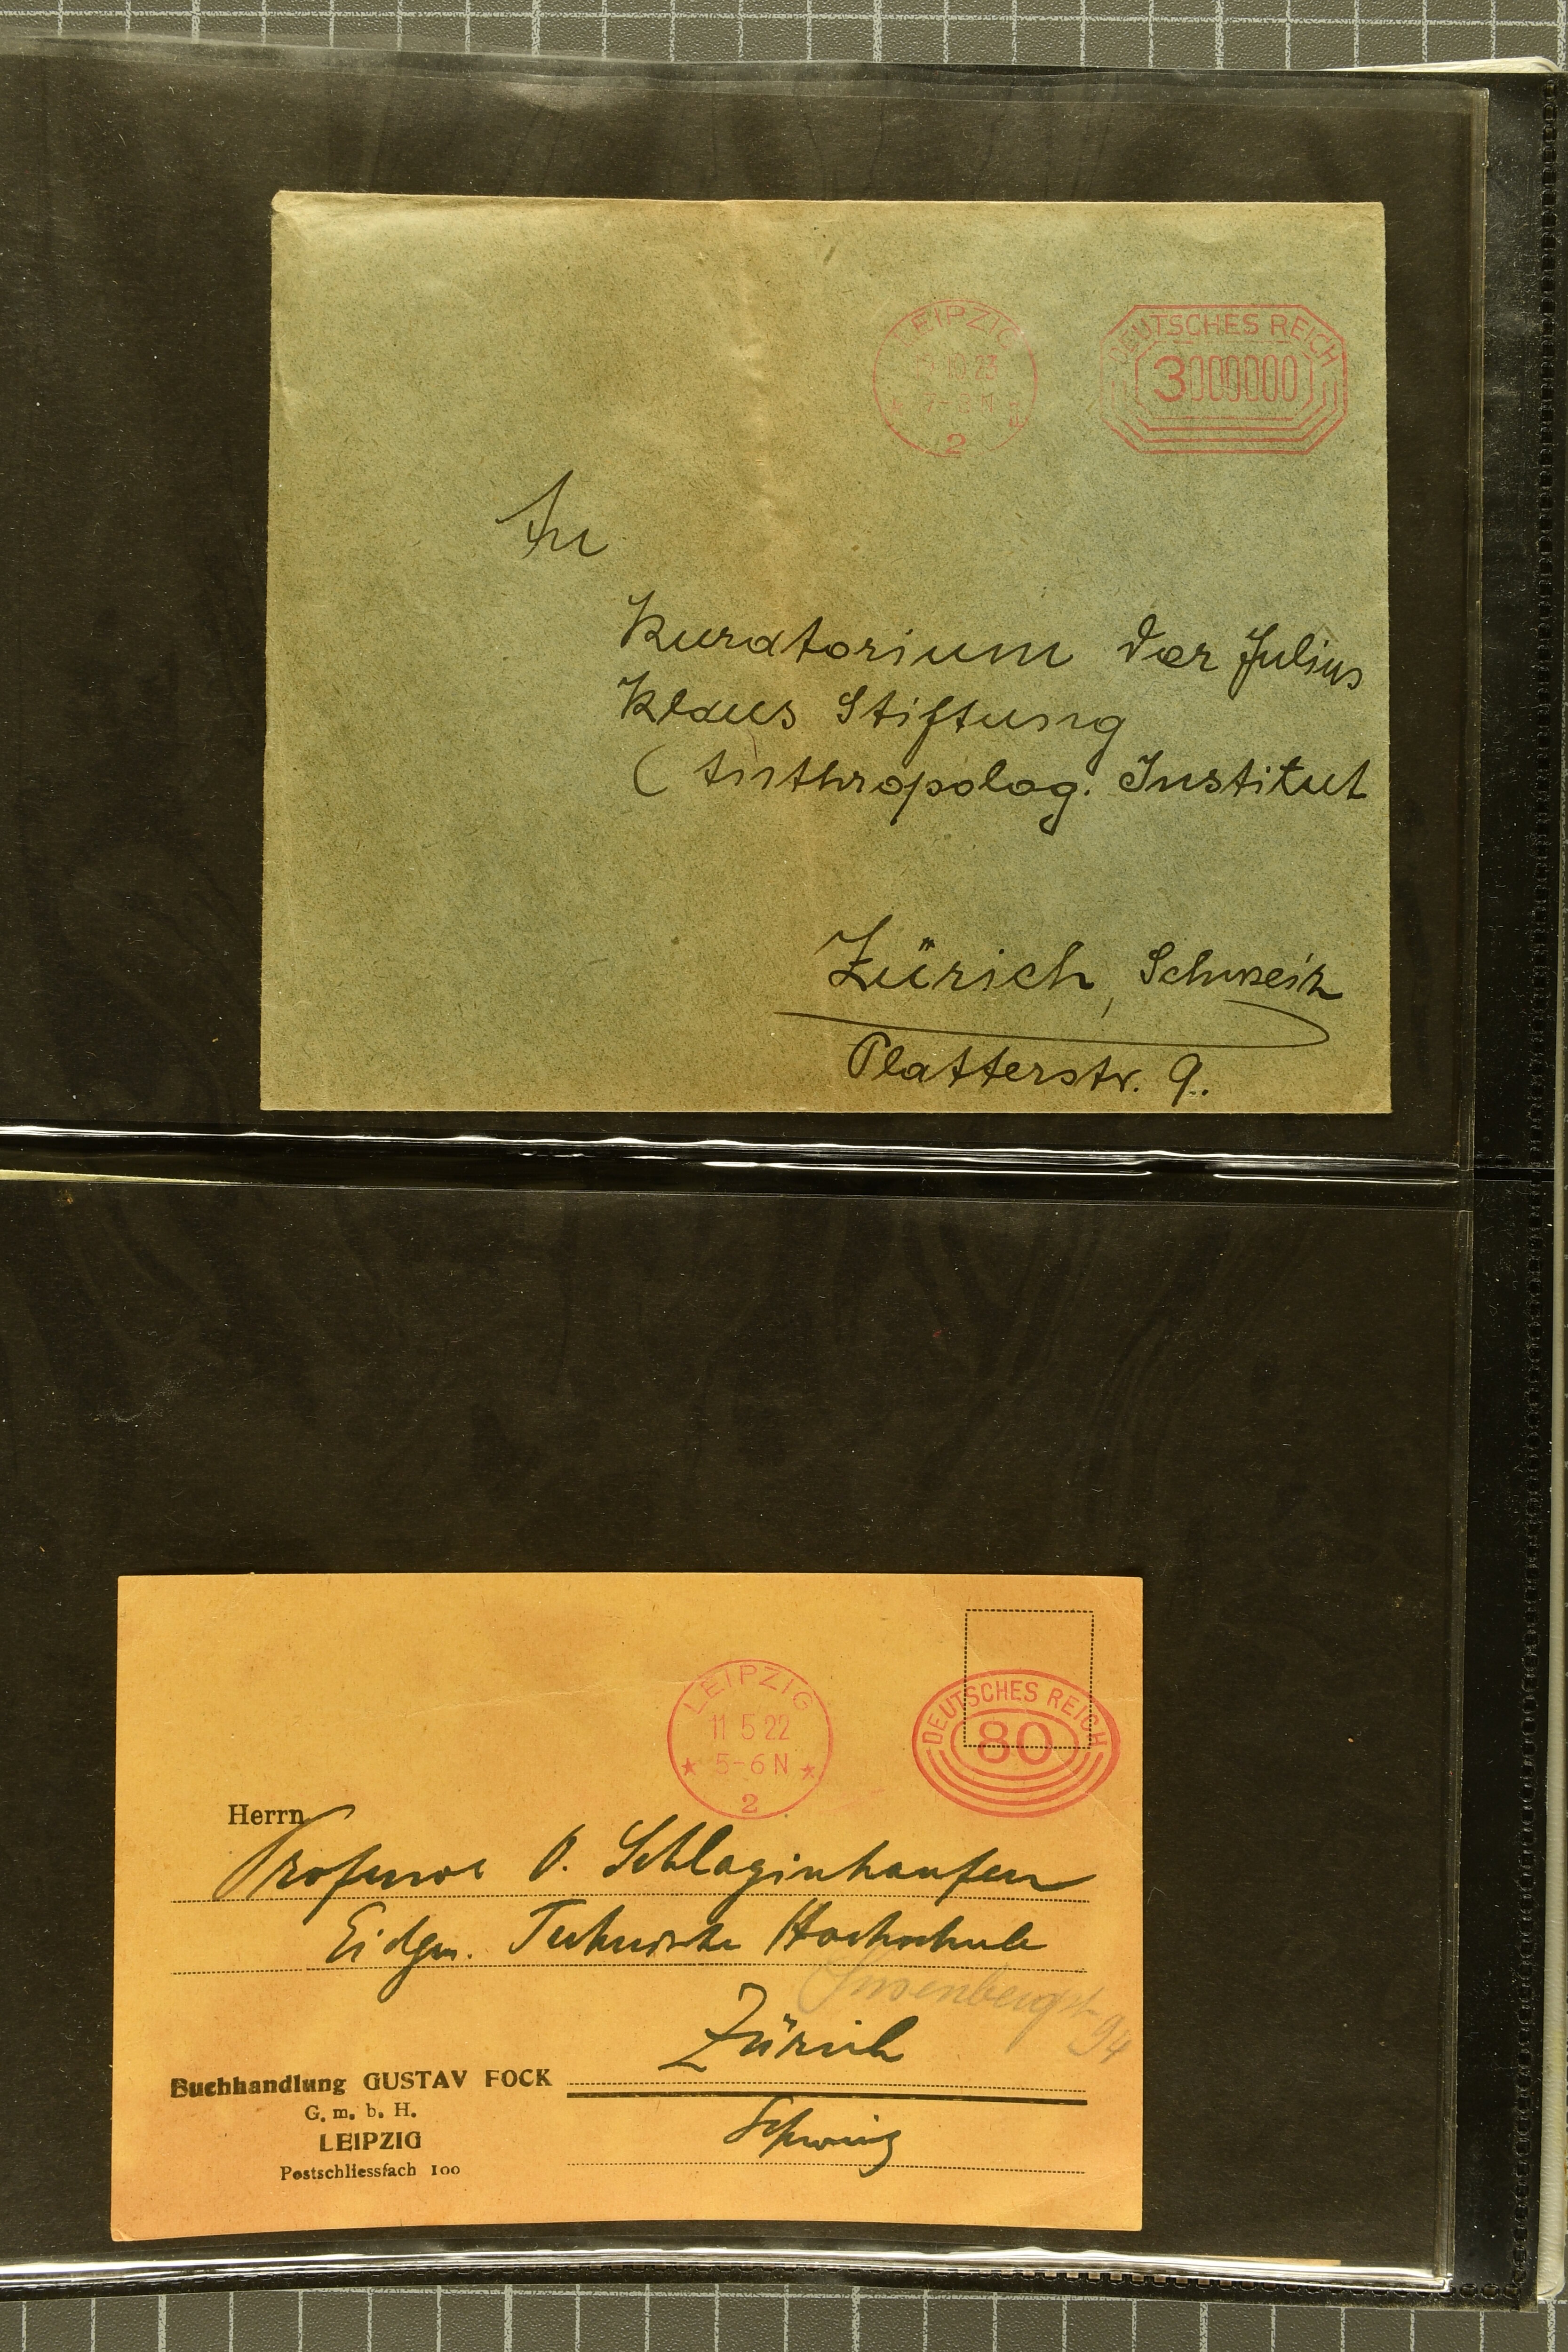 LEIPZIG
10 23
7-8 N
2
DEUTSCHES REICH
30000000
An
Kuratorium der Julius
Klaus Stiftung
(Anthropolog. Institut
Zürich, Schweiz
Platterstr. 9.
LEIPZIG
11 5 22
* 5-6 N *
2
DEUTSCHES REICH
80
Herrn
Professor O. Schlaginhaufen
Eidgn. Technische Hochschule
Susenbergst
94
Zürich
Buchhandlung GUSTAV FOCK
G. m. b. H.
LEIPZIG
Postschliessfach 100
Schweiz